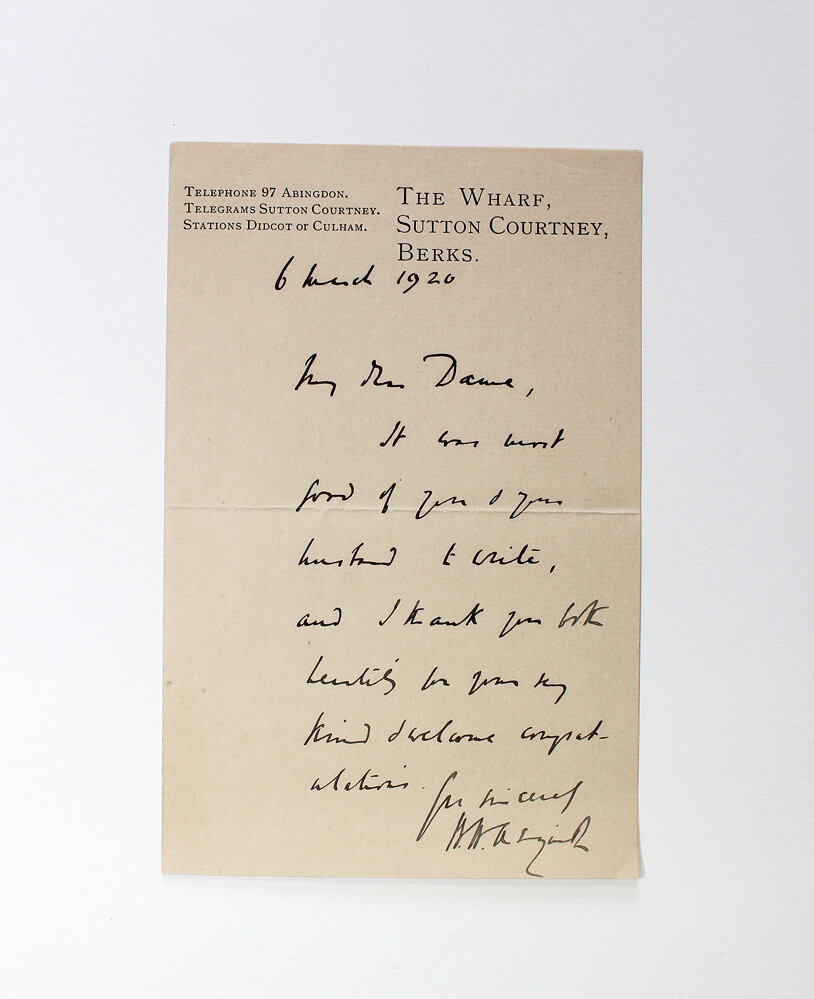 TELEPHONE 97 ABINGDON.
TELEGRAMS SUTTON COURTNEY.
STATIONS DIDCOT OR CULHAM.
THE WHARF,
SUTTON COURTNEY,
BERKS.
6 March 1920
My dear Dame,
It was most
good of you & your
husband to write,
and I thank you both
heartily for your very
kind & welcome congrat-
ulations.
Yrs sincerely
H.H. Asquith